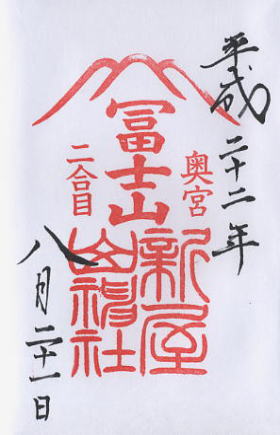 平成二十二年
奥宮
冨士山
二合目
新屋
山神社
八月二十一日